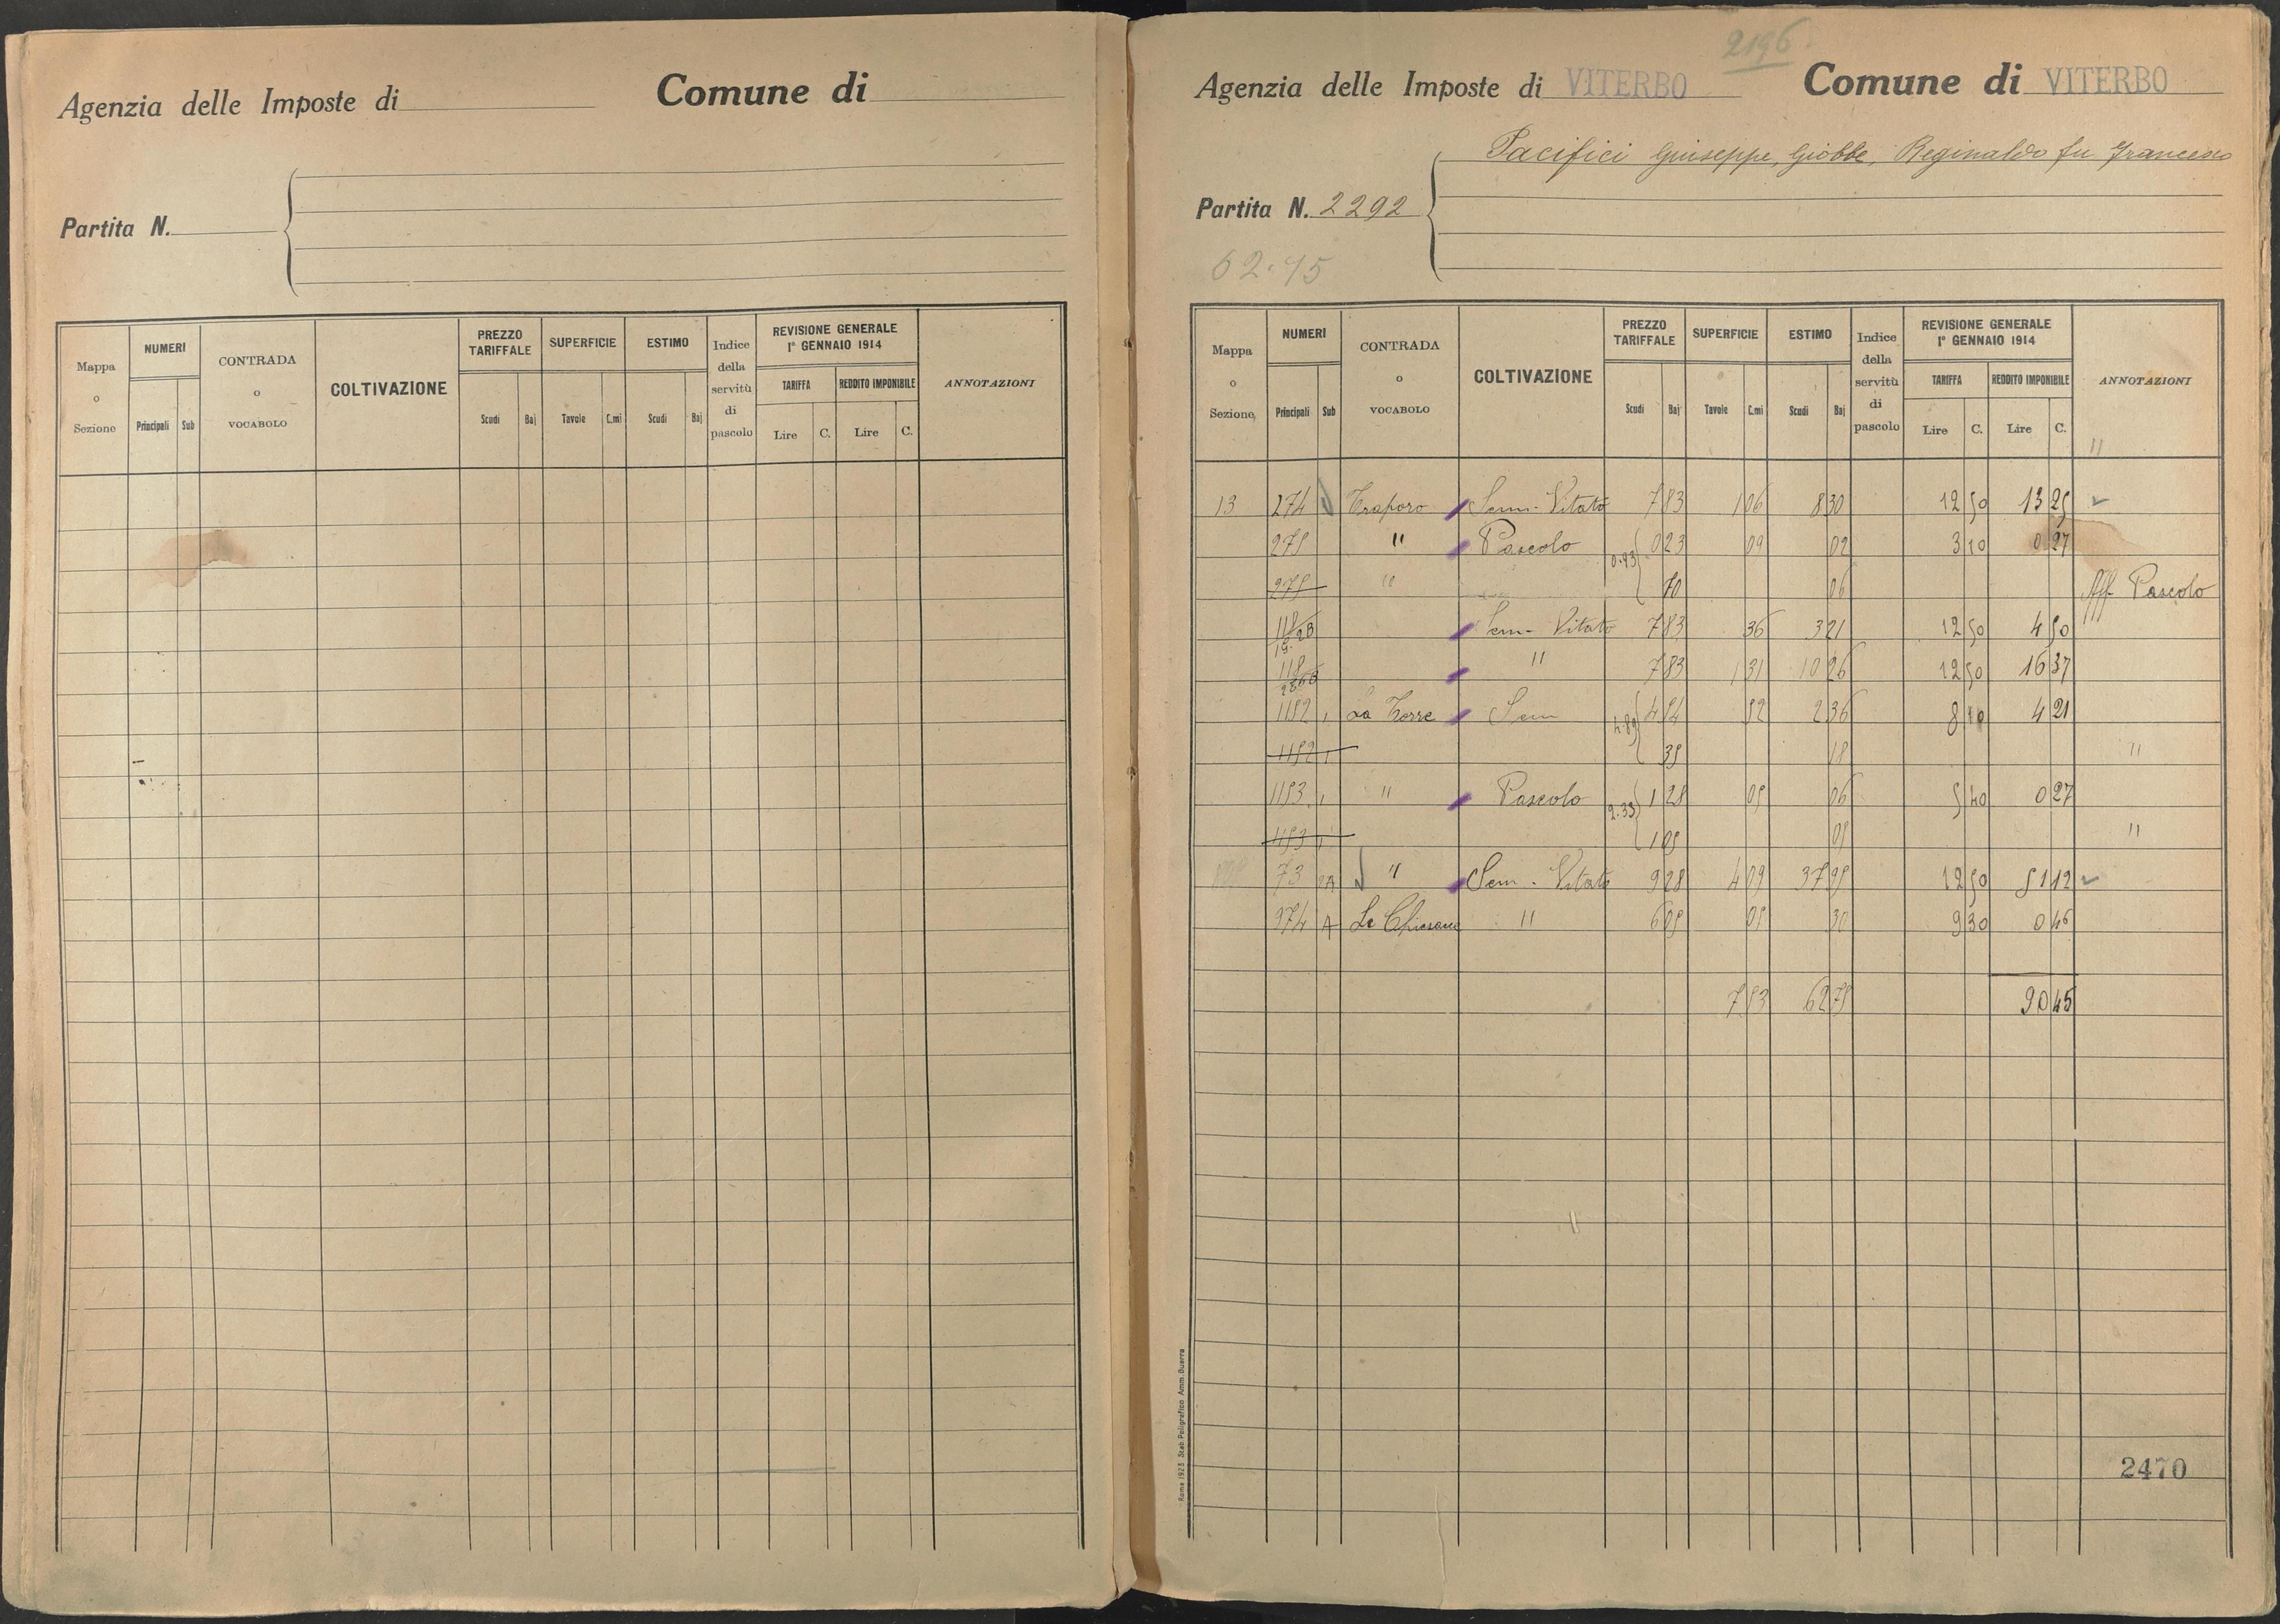 Agenzia delle Imposte di Comune di
Partita N.
Mappa o Sezione
NUMERI
Principali Sub
CONTRADA o VOCABOLO
COLTIVAZIONE
PREZZO TARIFFALE
Scudi Baj
SUPERFICIE
Tavole C.mi
ESTIMO
Scudi Baj
Indice della servitù di pascolo
REVISIONE GENERALE
1° GENNAIO 1914
TARIFFA REDDITO IMPONIBILE
Lire C. Lire C.
ANNOTAZIONI
2196
Agenzia delle Imposte di VITERBO Comune di VITERBO
Pacifici Giuseppe, Giobbe, Reginaldo fu Francesco
Partita N. 2292
62.75
Mappa o Sezione
NUMERI
Principali Sub
CONTRADA o VOCABOLO
COLTIVAZIONE
PREZZO TARIFFALE
Scudi Baj
SUPERFICIE
Tavole C.mi
ESTIMO
Scudi Baj
Indice della servitù di pascolo
REVISIONE GENERALE
1° GENNAIO 1914
TARIFFA REDDITO IMPONIBILE
Lire C. Lire C.
ANNOTAZIONI
"
13 274 Traporo Sem. Vitato 7 83 1 06 8 30 12 50 13 25
275 " Pascolo 0.93 0 23 09 02 3 10 0 27
275 " 70 06 Aff. Pascolo
Sem. Vitato 7 83 36 3 21 12 50 4 50
" 7 83 1 31 10 26 12 50 16 37
1152 1 La Torre Sem 4.89 4 54 52 2 36 8 10 4 21
1152 1 35 18 "
1153 1 " Pascolo 2.33 1 28 05 06 5 40 0 27
1153 1 1 05 05 "
73 " Sem. Vitato 9 28 4 09 37 95 12 50 51 12
974 A Le " 6 05 05 30 9 30 0 46
7 53 62 75 90 45
Roma 1923 Stab. Poligrafico Amm. Guerra
2470